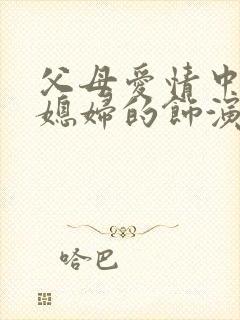 父母爱情中
媳妇的饰演
哈巴